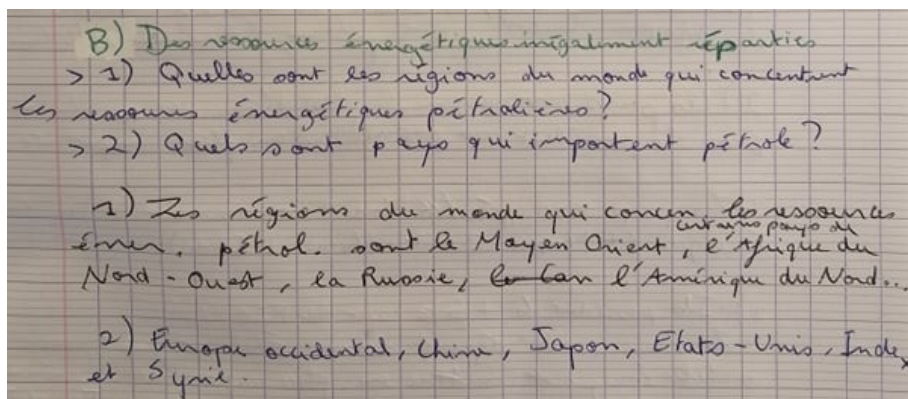 B) Des ressources énergétiques inégalement réparties
> 1) Quelles sont les régions du monde qui concentrent
les ressources énergétiques pétrolières?
> 2) Quels sont pays qui importent pétrole?
1) Les régions du monde qui concen. les ressources
certains pays de
éner. pétrol. sont le Moyen Orient, l'Afrique du
Nord-Ouest, la Russie, le Can l'Amérique du Nord...
2) Europe occidental, Chine, Japon, Etats-Unis, Inde,
et Syrie.